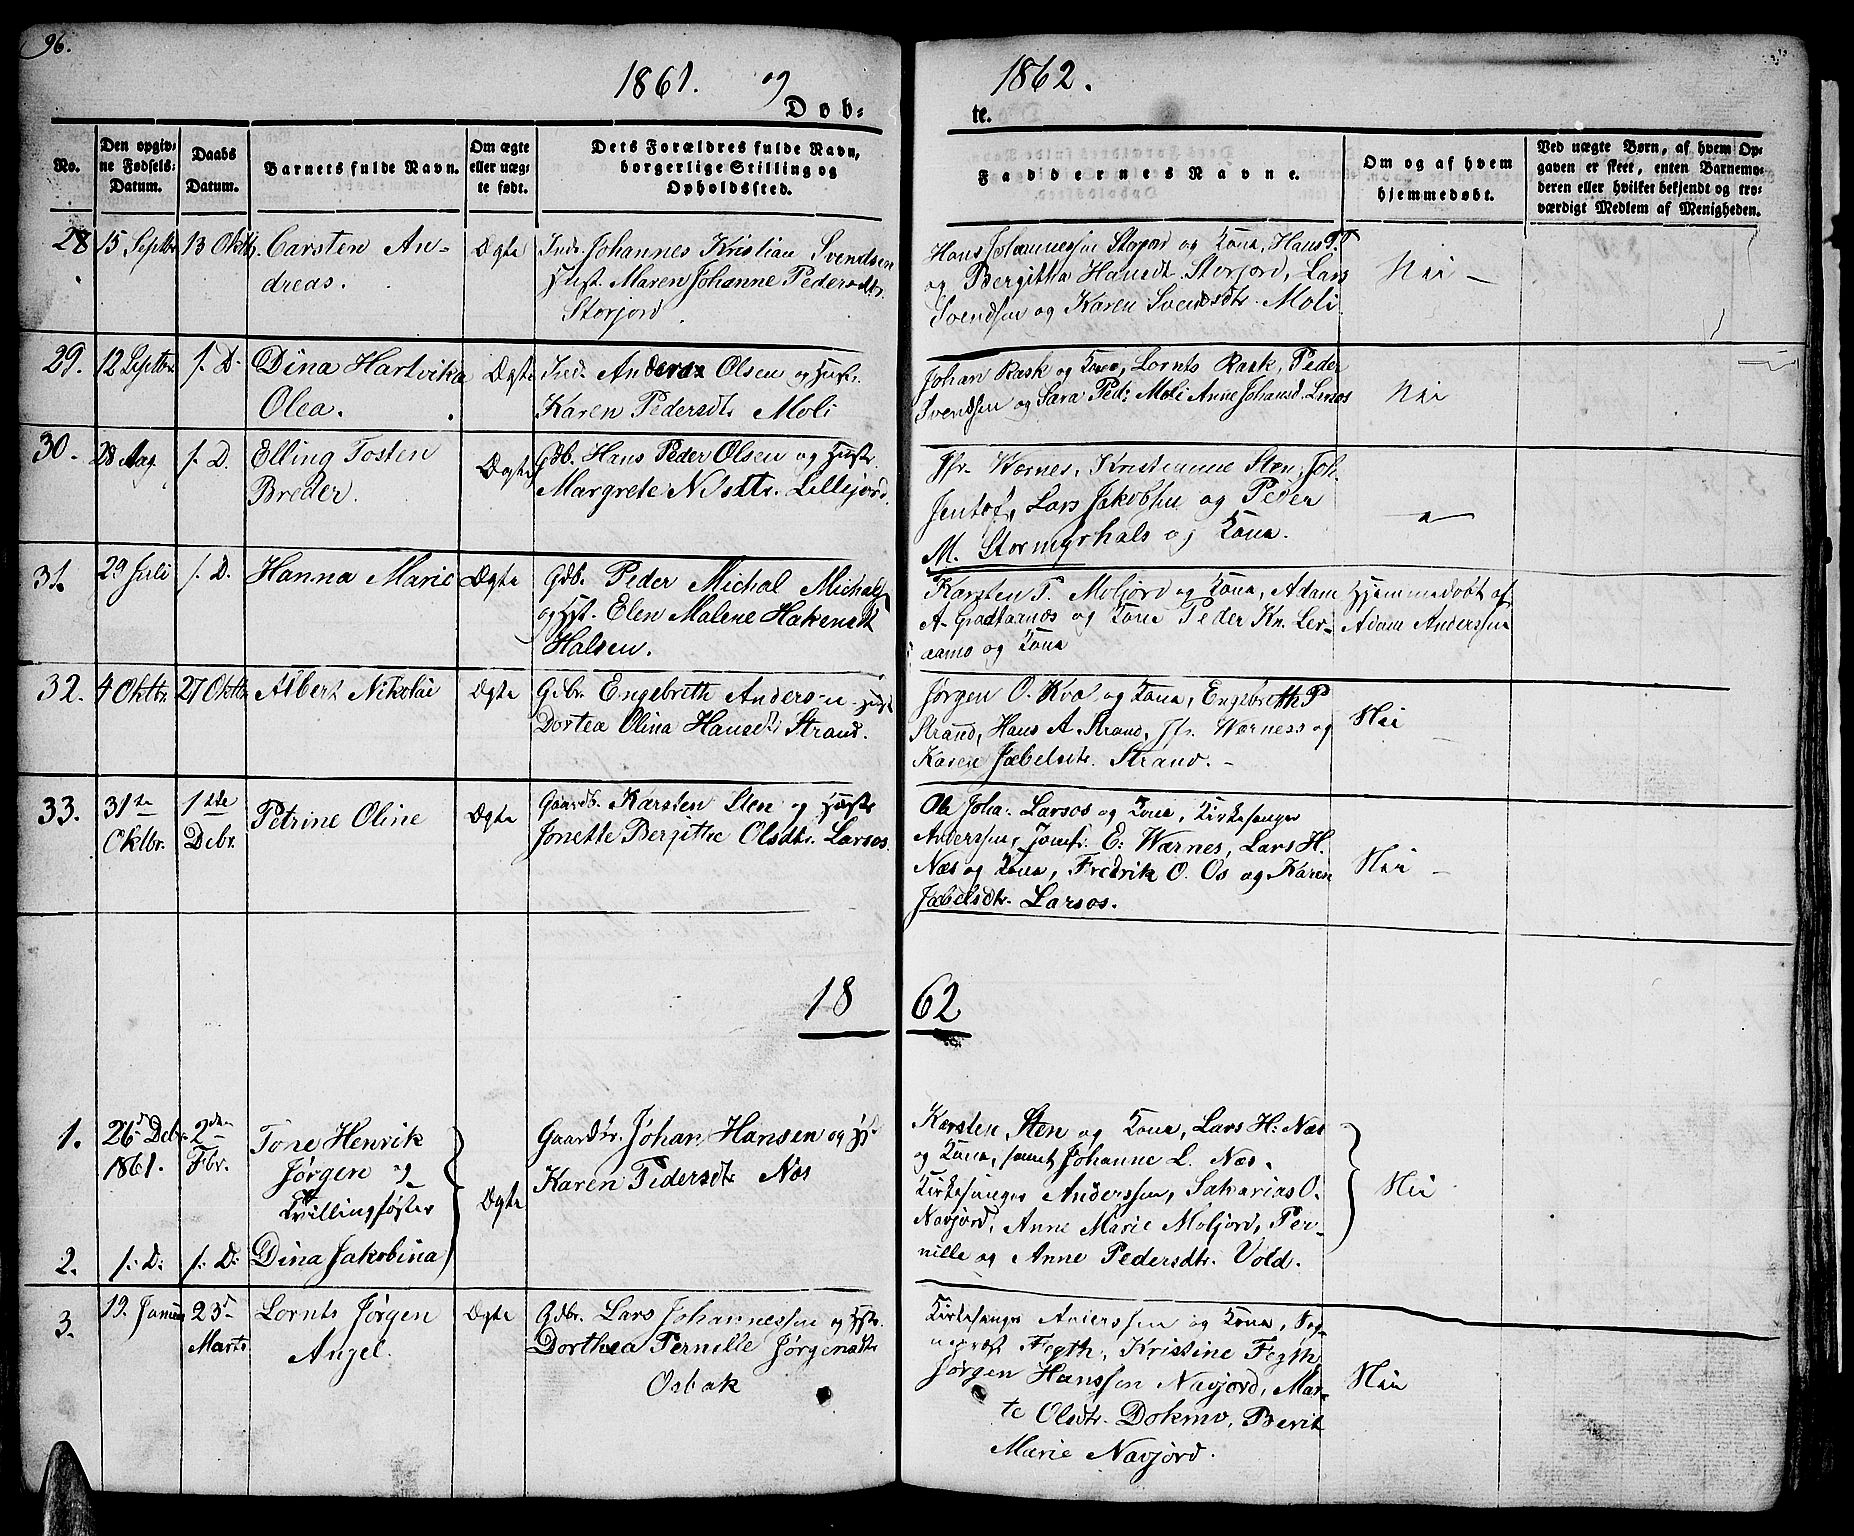 96.
1861. og 1862.
Døb- te.
No.
Den opgiv-
ne Fødsels-
Datum.
Daabs
Datum.
Barnets fulde Navn.
Om ægte
eller uæg-
te født.
Dets Forældres fulde Navn,
borgerlige Stilling og
Opholdssted.
Faddernes Navne.
Om og af hvem
hjemmedøbt.
Ved uægte Børn, af hvem Op-
gaven er skeet, enten Barnemo-
deren eller hvilket bekjendt og tro-
værdigt Medlem af Menigheden.
28 15 Septbr 13 Oktb. Carsten An-
dreas.
Ægte
Ind. Johannes Kristian Svendsen
Hust. Maren Johanne Pedersdtr.
Storjord.
Hans Johannessen Storjord og Kona, Hans P.
og Bergitta Hansdt. Storjord, Lars
Svendsen og Karen Svendsdtr. Moli
Nei —
29. 12 Septbr. /. D. Dina Hartvika
Olea.
Ægte
Ind. Anders Olsen og Hust.
Karen Pedersdtr Moli
Johan Rask og Kona, Lornts Rask, Peder
Svendsen og Sara Ped: Moli Anne Johansd. Larsos
Nei
30. 28 Aug /. D. Elling Tosten
Breder.
Ægte
Gdb. Hans Peder Olsen og Hustr.
Margrete Nilsdtr. Lillejord.
Jfr. Wærnes, Kristianne Sten, Joh.
Jentof, Lars Jakobsen og Peder
M. Stormyrhals og Kona.
31. 29 Juli /. D. Hanna Marie
Ægte
Gdb. Peder Michal Michals
og Hst. Elen Malene Hakensdt
Halsen.
Karsten P. Moljord og Kona, Adam
A. Gradtaanæs og Kona Peder Kn. Ler-
aamo og Kona
Hjemmedøbt af
Adam Anderssen
32. 4 Oktbr. 27 Oktbr. Albert Nikolai
Ægte
Gdbr. Engebreth Andersen Hust
Dortea Olina Hansdtr Strand.
Jørgen O. Kvæ og Kona, Engebreth P
Strand, Hans A. Strand, Jfr. Wærness og
Karen Jæbelsdtr. Strand. —
Nei
33. 31te
Oktbr.
1ste
Debr.
Petrine Oline
Ægte
Gaardb. Karsten Sten og Hustr
Jonette Bergitte Olsdtr. Larsos.
Ole Joha. Larsos og Kona, Kirkesanger
Anderssen, Jomfr. E: Wærnes, Lars H.
Næs og Kona, Fredrik O. Os og Karen
Jæbelsdtr. Larsos.
Nei —
18 62
1. 26d Debr.
1861.
2den
Fbr.
Tone Henrik
Jørgen og
Tvillingsøster
Ægte
Gaardbr. Johan Hansen og H.
Karen Pedersdtr Næs
Karsten Sten og Kona, Lars H: Næs
og Kona, samt Johanne L. Næs.
Kirkesanger Anderssen, Sakarias O.
Navjord, Anne Marie Moljord, Per-
nille og Anne Pedersdtr. Vold.
Nei
2. /: D: /: D: Dina Jakobina
3. 19. Januar 23d
Marts
Lornts Jørgen
Angel.
Ægte
Gdbr. Lars Johannessen og Hstr.
Dorthea Pernille Jørgensdtr
Osbak
Kirkesanger Anderssen og Kona, Sog-
neprest Fegth, Kristine Fegth
Jørgen Hanssen Navjord, Mar-
te Olsdtr. Dokmo, Berit
Marie Navjord.
Nei